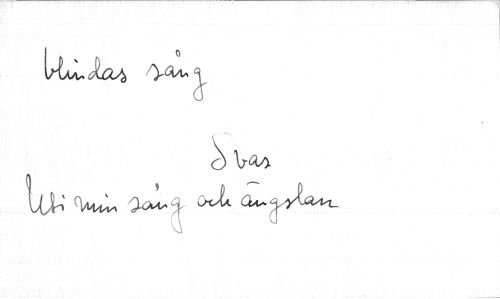 blindas sång
Svar
Uti min sång och ängslan